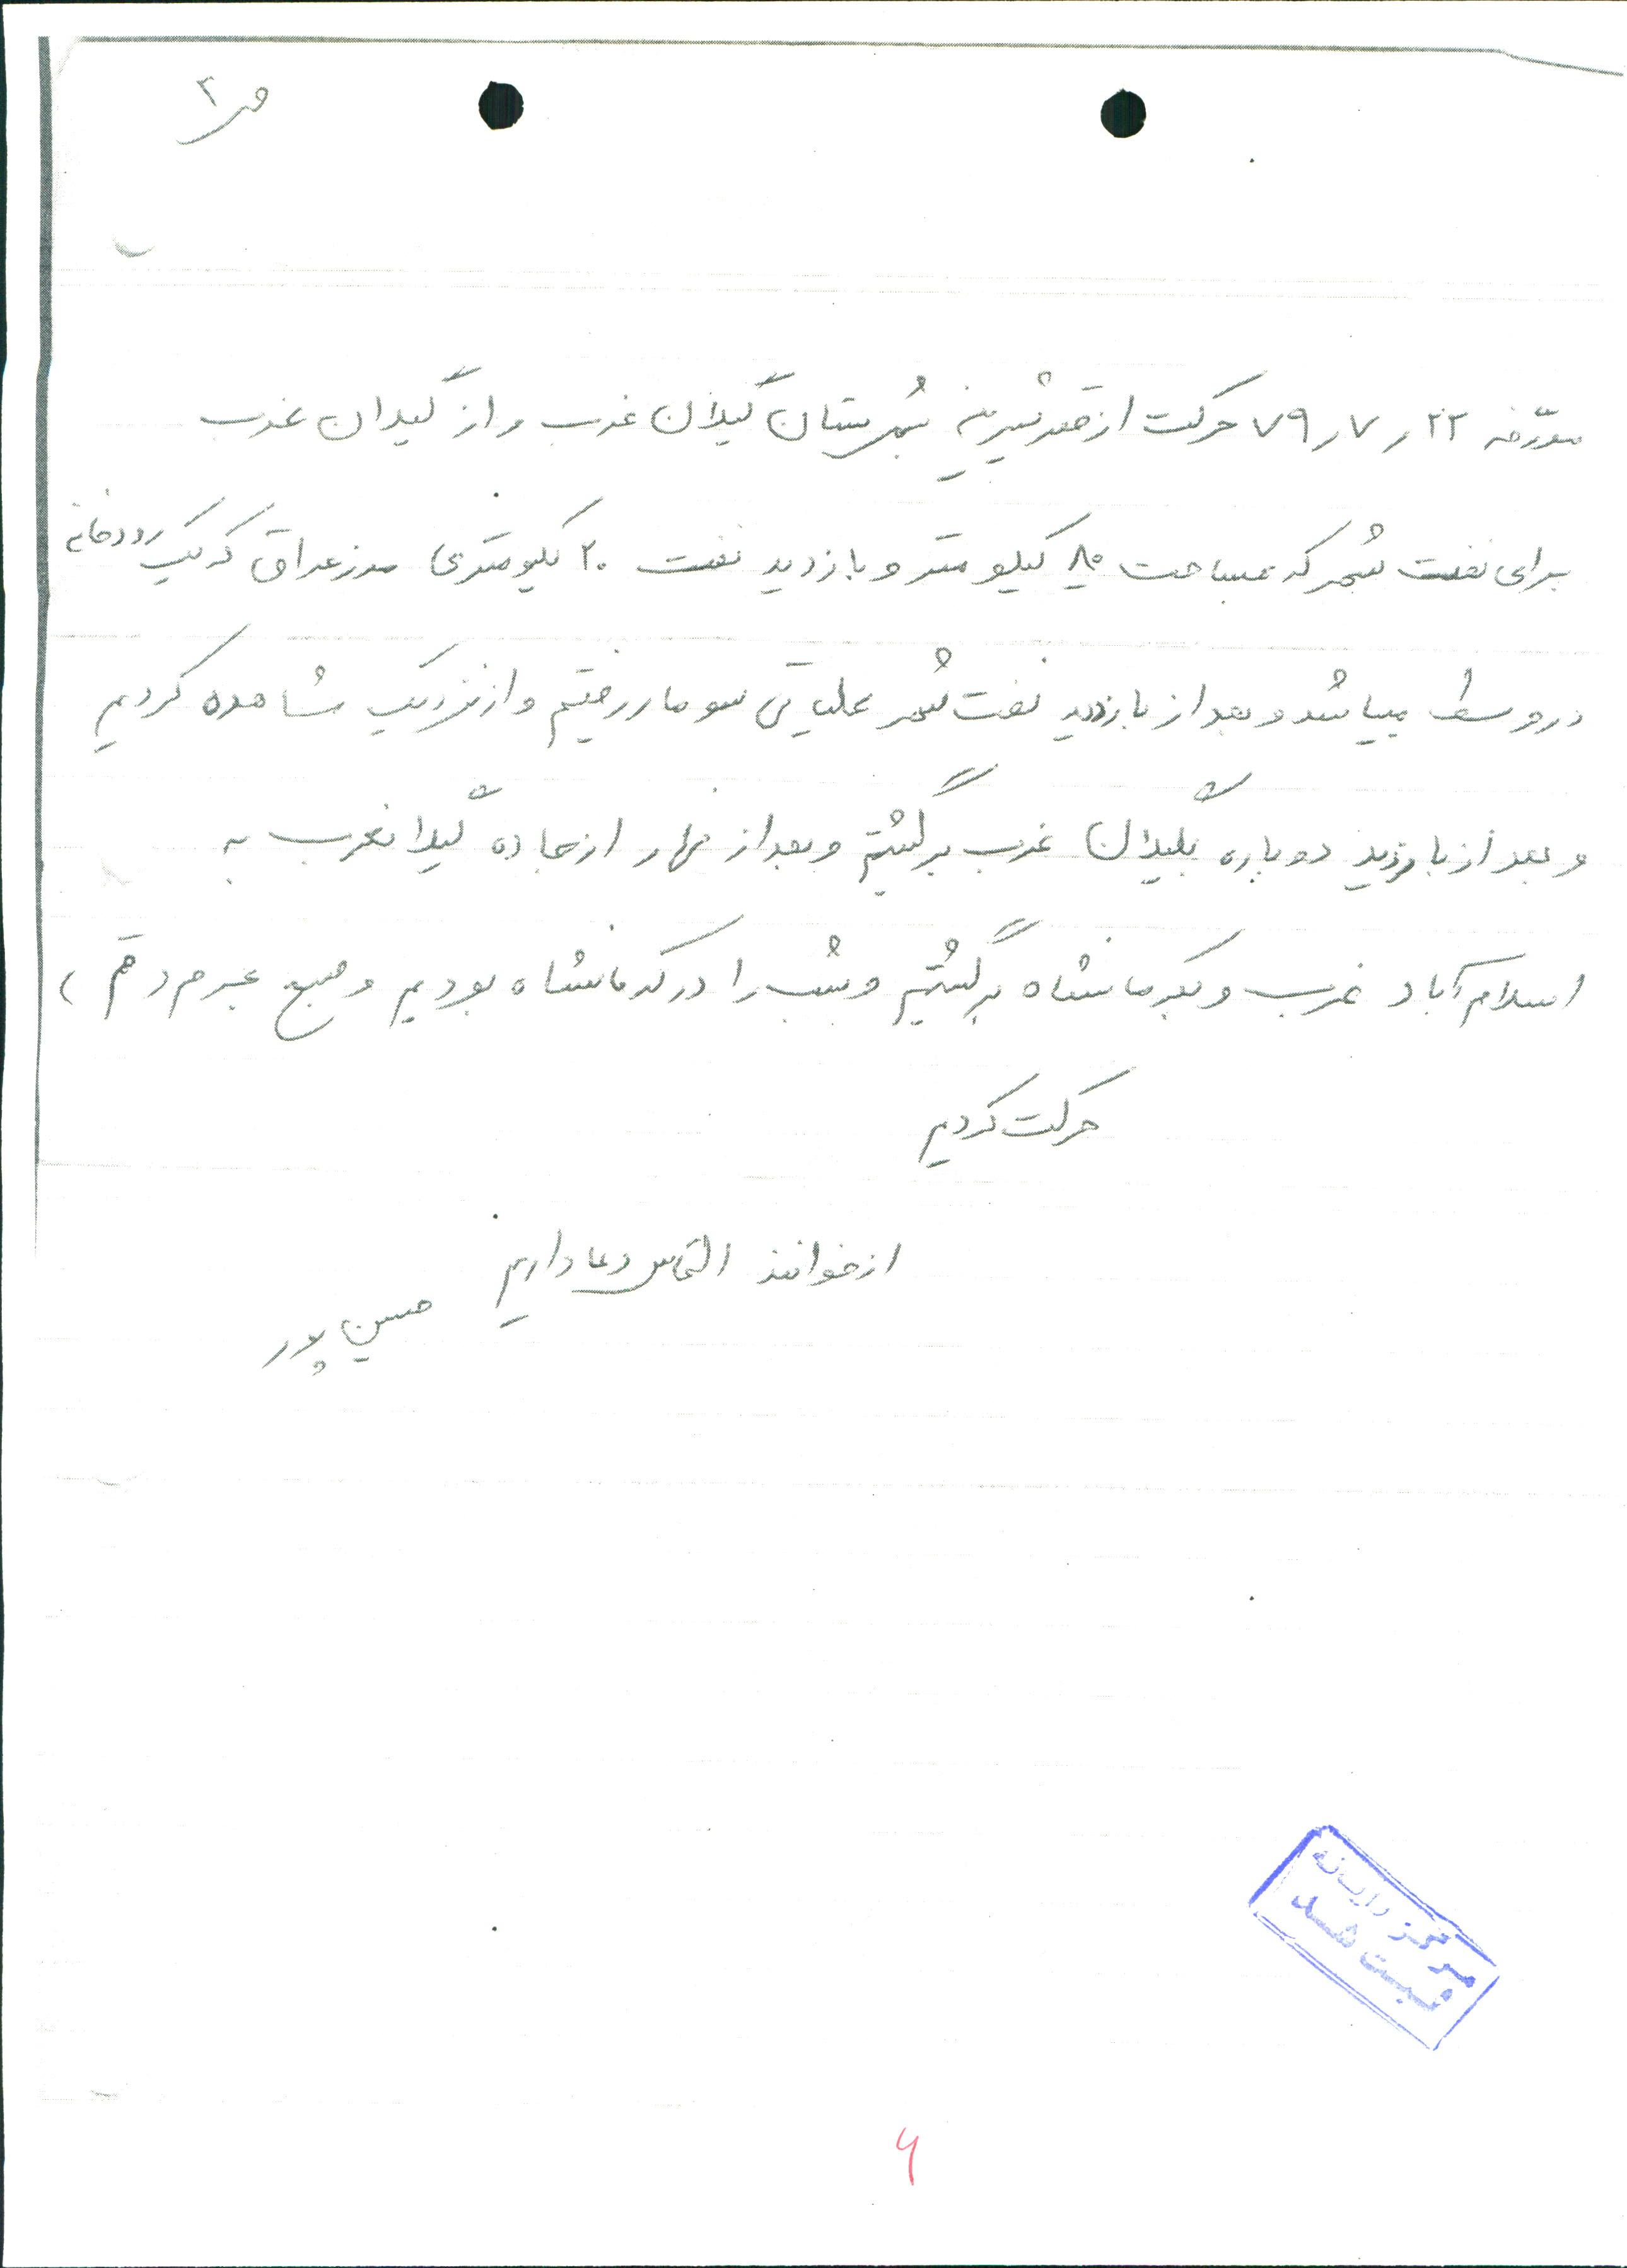 ص ۲
مورّخه ۲۲ ر ۷ ر ۷۹ حرکت از قصرشیرین بشهرستان گیلان غرب و از گیلان غرب
برای نفت شهر که بمساحت ۸۰ کیلومتر و بازدید نفت ۲۰ کیلومتری مرز عراق که یک رودخانه
در وسط میباشد و بعد از بازدید نفت شهر عملیاتی سومار رفتیم و از نزدیک مشاهده کردیم
و بعد از بازدید دوباره بگیلان غرب برگشتیم و بعد از نهار از جاده گیلانغرب به
اسلام آباد غرب و بکرمانشاه برگشتیم و شب را در کرمانشاه بودیم و صبح عزم (قم)
حرکت کردیم
از خوانند التماس دعا داریم
حسین پور
مرکز رایانه
ثبت شد
۶